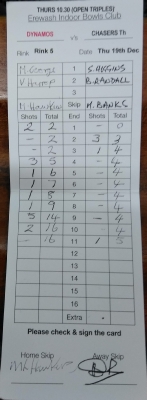 THURS 18.30 (OPEN TRIPLES)
Erewash Indoor Bowls Club
DYNAMOS v's CHASERS Th
Rink Rink 5 Date Thu 19th Dec
M George 1 S. HIGGINS
V Hemp 2 B. RANDALL
3
M Hawkins Skip M. BANKS
Shots Total End Shots Total
2 2 1 - 0
- 2 2 3 3
- 2 3 1 4
3 5 4 - 4
1 6 5 - 4
1 7 6 - 4
1 8 7 - 4
1 9 8 - 4
5 14 9 - 4
2 16 10 - 4
- 16 11 1 5
12
13
14
15
16
Extra
Please check & sign the card
Home Skip Away Skip